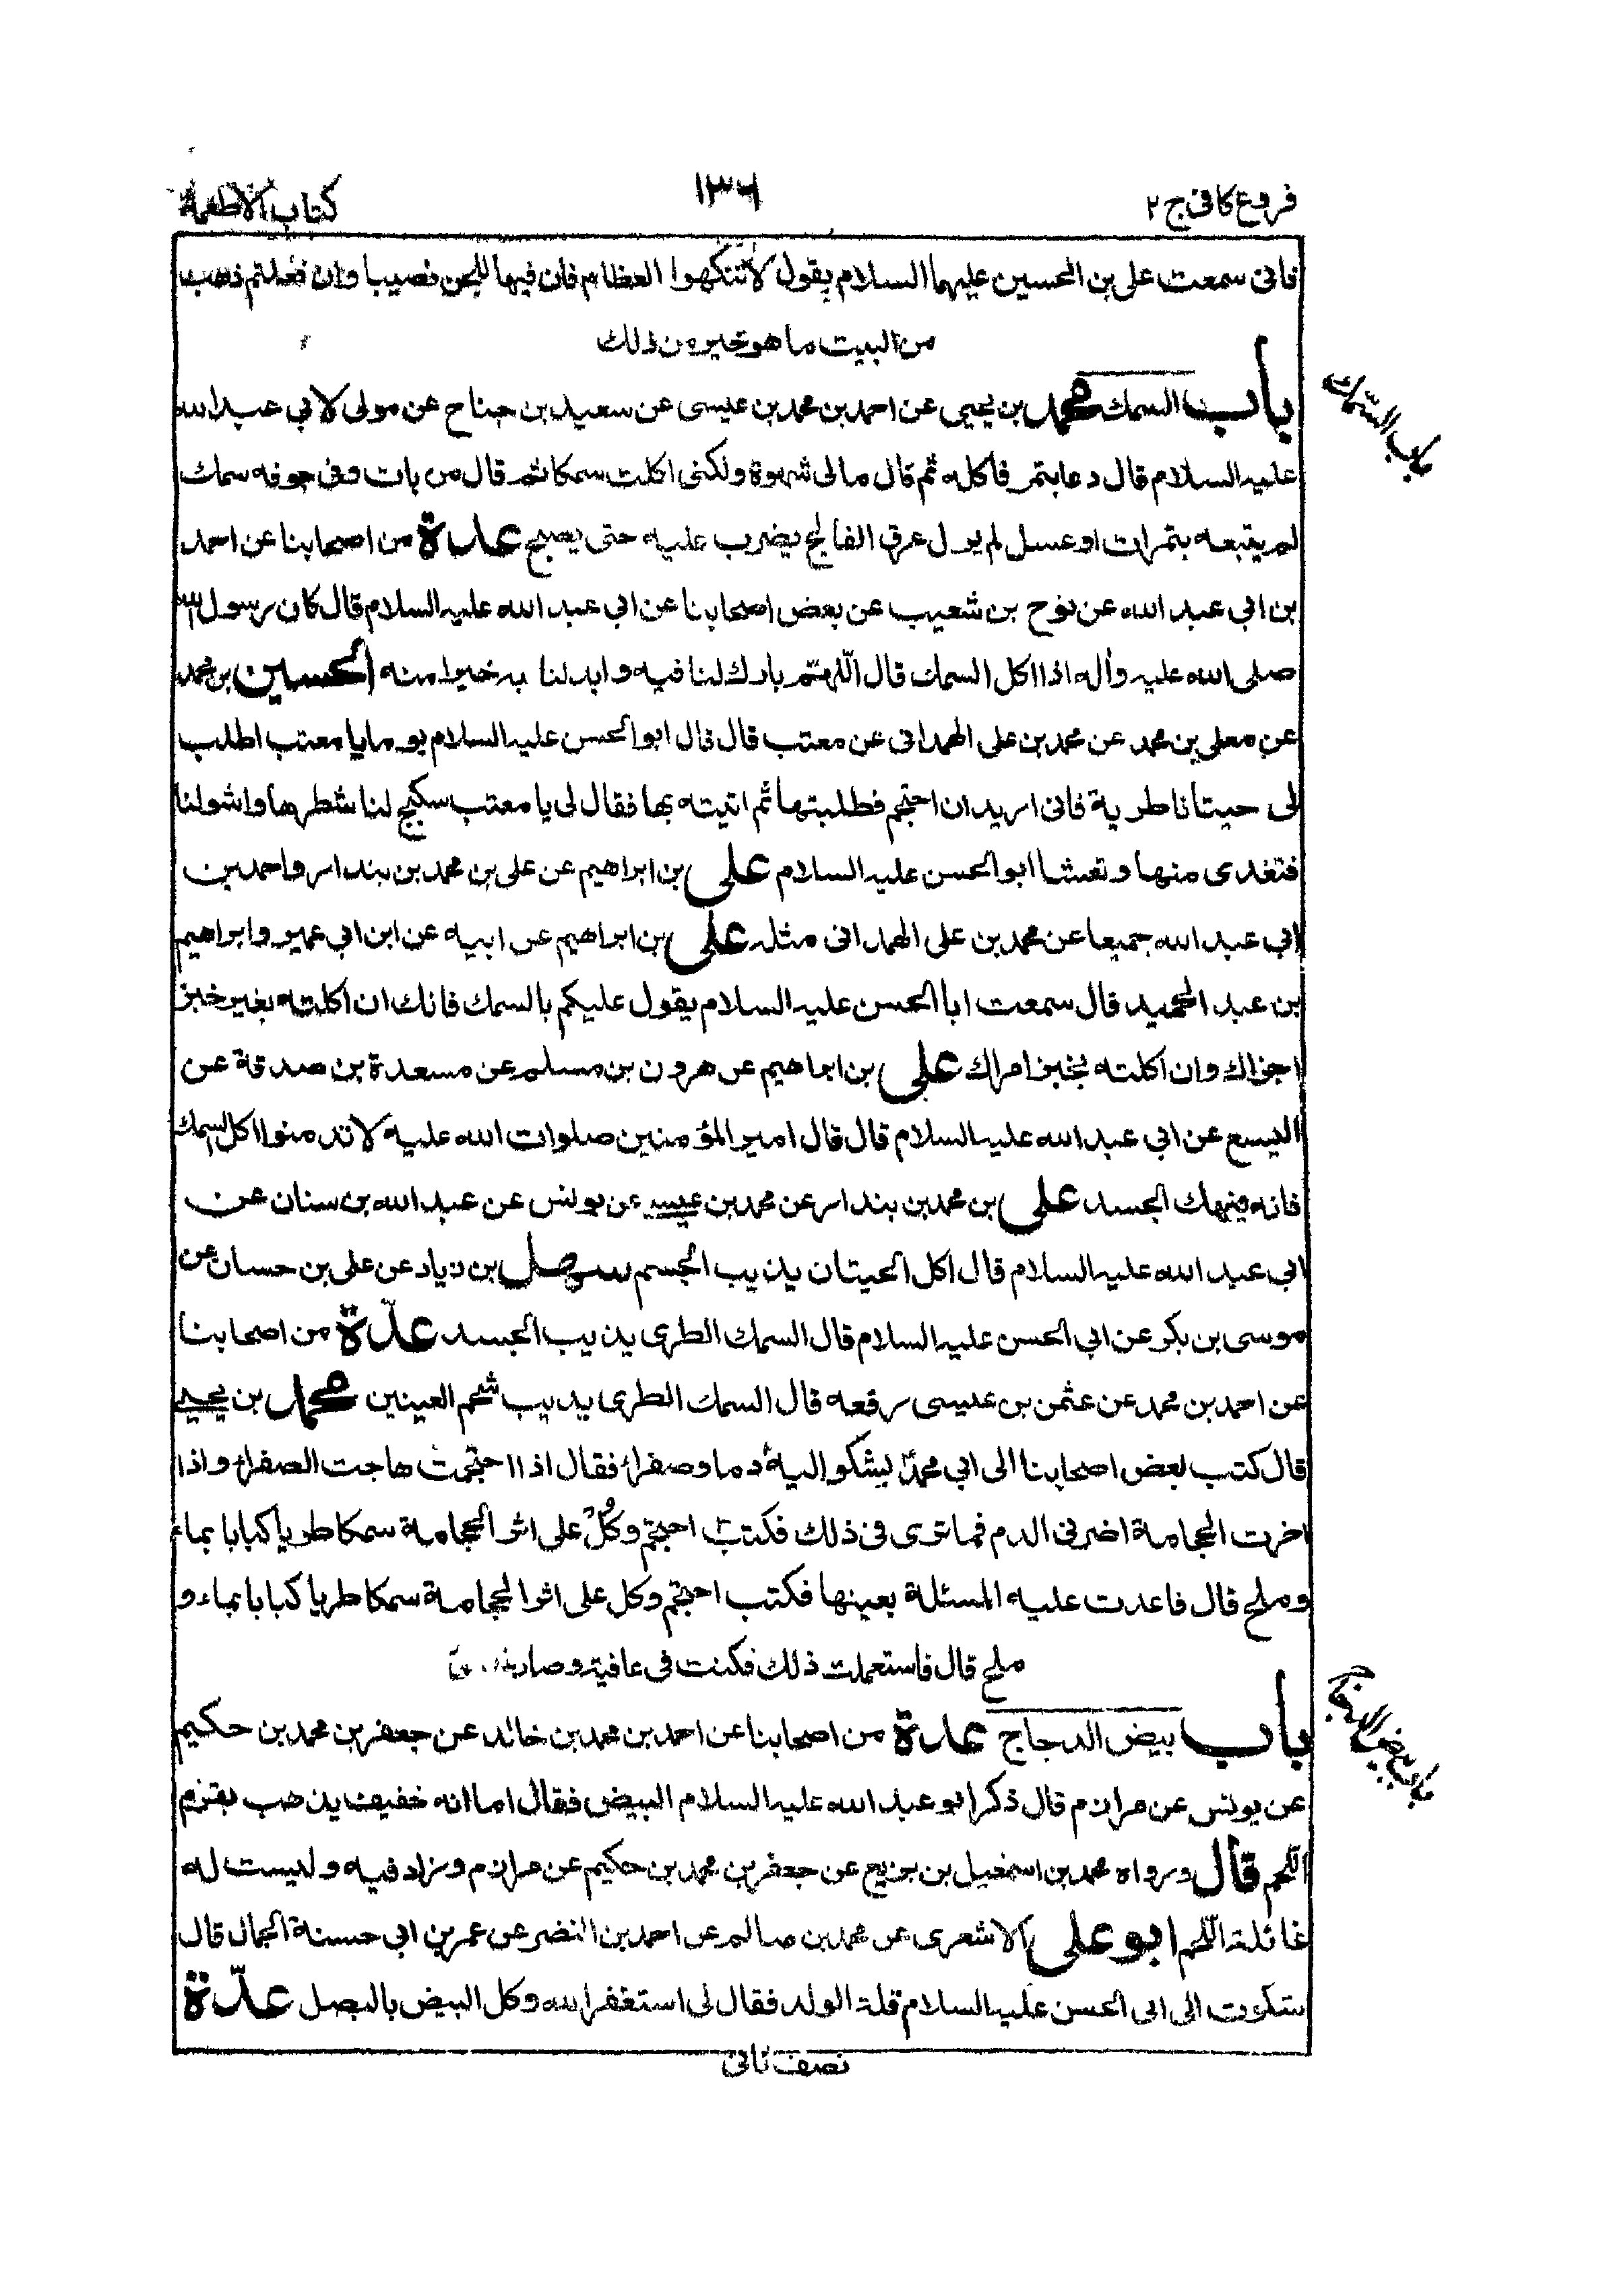 فروع كافى ج ٢
١٣٦
كتاب الاطعمة
فانى سمعت على بن الحسين عليهما السلام يقول لاتنهكوا العظام فان فيها للجن نصيبا وان فعلتم ذهب
من البيت ما هو خير من ذلك
باب السمك محمد بن يحيى عن احمد بن محمد بن عيسى عن سعيد بن جناح عن مولى لابي عبد الله
عليه السلام قال دعا بتمر فاكله ثم قال مالى شهوة ولكنى اكلت سمكا ثم قال من بات وفى جوفه سمك
لم يتبعه بتمرات او عسل لم يزل عرق الفالج يضرب عليه حتى يصبح عدة من اصحابنا عن احمد
بن ابي عبد الله عن نوح بن شعيب عن بعض اصحابنا عن ابي عبد الله عليه السلام قال كان رسول الله
صلى الله عليه وآله اذا اكل السمك قال اللّهمّ بارك لنا فيه وابدلنا به خيرا منه الحسين بن محمد
عن معلى بن محمد عن محمد بن على الهمدانى عن معتب قال قال ابو الحسن عليه السلام يوما يا معتب اطلب
لى حيتانا طرية فانى اريد ان احتجم فطلبتها ثم اتيته بها فقال لى يا معتب سكبج لنا شطرها واشو لنا
فتغدى منها وتعشا ابو الحسن عليه السلام على بن ابراهيم عن على بن محمد بن بندار واحمد بن
ابي عبد الله جميعا عن محمد بن على الهمدانى مثله على بن ابراهيم عن ابيه عن ابن ابي عمير وابراهيم
بن عبد الحميد قال سمعت ابا الحسن عليه السلام يقول عليكم بالسمك فانك ان اكلته بغير خبز
اجزاك وان اكلته بخبز امراك على بن ابراهيم عن هرون بن مسلم عن مسعدة بن صدقة عن
اليسع عن ابي عبد الله عليه السلام قال قال امير المؤمنين صلوات الله عليه لا تدمنوا اكل السمك
فانه ينهك الجسد على بن محمد بن بندار عن محمد بن عيسى عن يونس عن عبد الله بن سنان عن
ابي عبد الله عليه السلام قال اكل الحيتان يذيب الجسم سهل بن زياد عن على بن حسان عن
موسى بن بكر عن ابي الحسن عليه السلام قال السمك الطرى يذيب الجسد عدّة من اصحابنا
عن احمد بن محمد عن عثمن بن عيسى رفعه قال السمك الطرى يذيب شحم العينين محمد بن يحيى
قال كتب بعض اصحابنا الى ابي محمدؑ يشكو اليه دما وصفراء فقال اذا احتجمت هاجت الصفراء واذا
اخرت الحجامة اضر نى الدم فما ترى فى ذلك فكتبؑ احتجم وكُلْ على اثر الحجامة سمكا طريا كبابا بماء
وملح قال فاعدت عليه المسئلة بعينها فكتب احتجم وكل على اثر الحجامة سمكا طريا كبابا بماء و
ملح قال فاستعملت ذلك فكنت فى عافية وصار
باب بيض الدجاج عدة من اصحابنا عن احمد بن محمد بن خالد عن جعفر بن محمد بن حكيم
عن يونس عن مرازم قال ذكر ابو عبد الله عليه السلام البيض فقال اما انه خفيف يذهب بقرم
اللّحم قال ورواه محمد بن اسمعيل بن بزيع عن جعفر بن محمد بن حكيم عن مرازم وزاد فيه وليست له
غائلة اللّحم ابو على الاشعرى عن محمد بن سالم عن احمد بن النضر عن عمر بن ابي حسنة الجمال قال
شكوت الى ابى الحسن عليه السلام قلة الولد فقال لى استغفر الله وكل البيض بالبصل عدّة
نصف ثانى
باب السّمك
باب بيض الدجاج